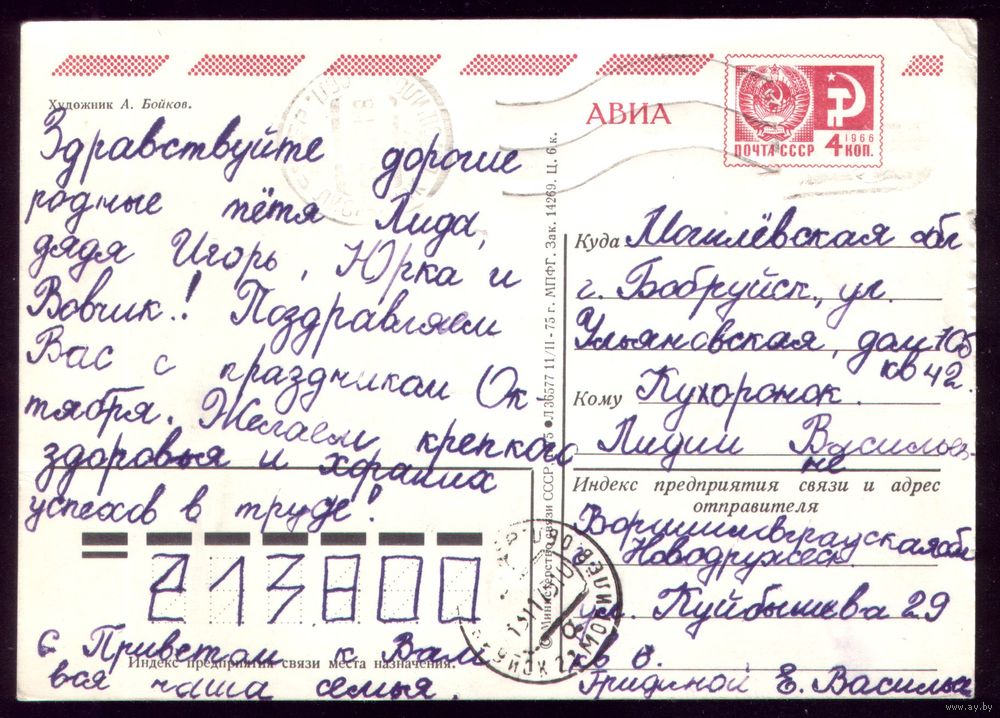 Художник А. Бойков.
АВИА
1966
ПОЧТА СССР 4 КОП.
Здравствуйте дорогие
родные тётя Лида,
дядя Игорь, Юрка и
Вовчик! Поздравляем
Вас с праздником Ок-
тября. Желаем крепкого
здоровья и хороших
успехов в труде!
213800
Индекс предприятия связи места назначения.
С Приветом к Вам
вся наша семья.
© Министерство связи СССР, Л 36577 11/II - 75 г. МППГ. Зак. 14269. Ц. 6 к.
Куда Могилёвская обл
г. Бобруйск, ул.
Ульяновская, дом 105
кв 42
Кому Кухоронок
Лидии Василье
не
Индекс предприятия связи и адрес
отправителя
Ворошиловградская обл
Новодружеск
ул. Куйбышева 29
кв 6.
Гридиной Е. Василье
www.ay.by